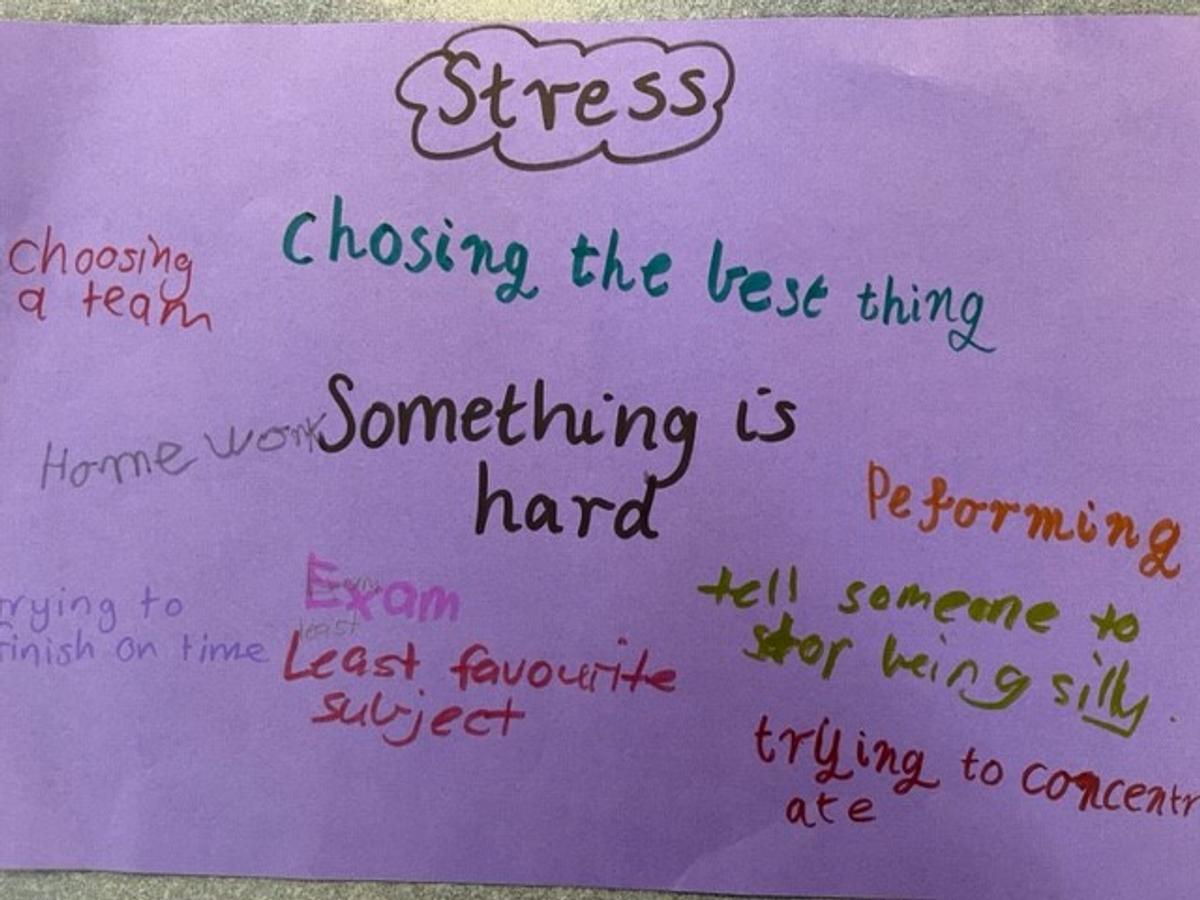 Stress
Chosing the best thing
choosing
a team
Something is
hard
Home work
Peforming
Exam
least
tell someone to
stop being silly.
rying to
finish on time
Least favourite
subject
trying to concentr
ate